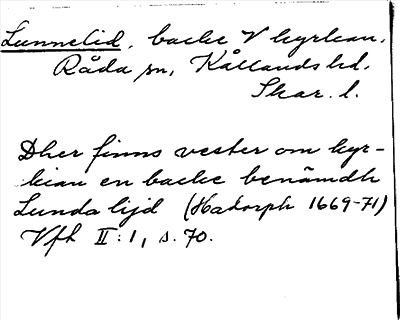 Lunnelid, backe V kyrkan,
Råda sn, Kållands hd,
Skar. l.
Dher finns vester om kyr-
kian en backe benämdh
Lunda lijd (Hadorph 1669-71)
Vfh II:1, s. 70.